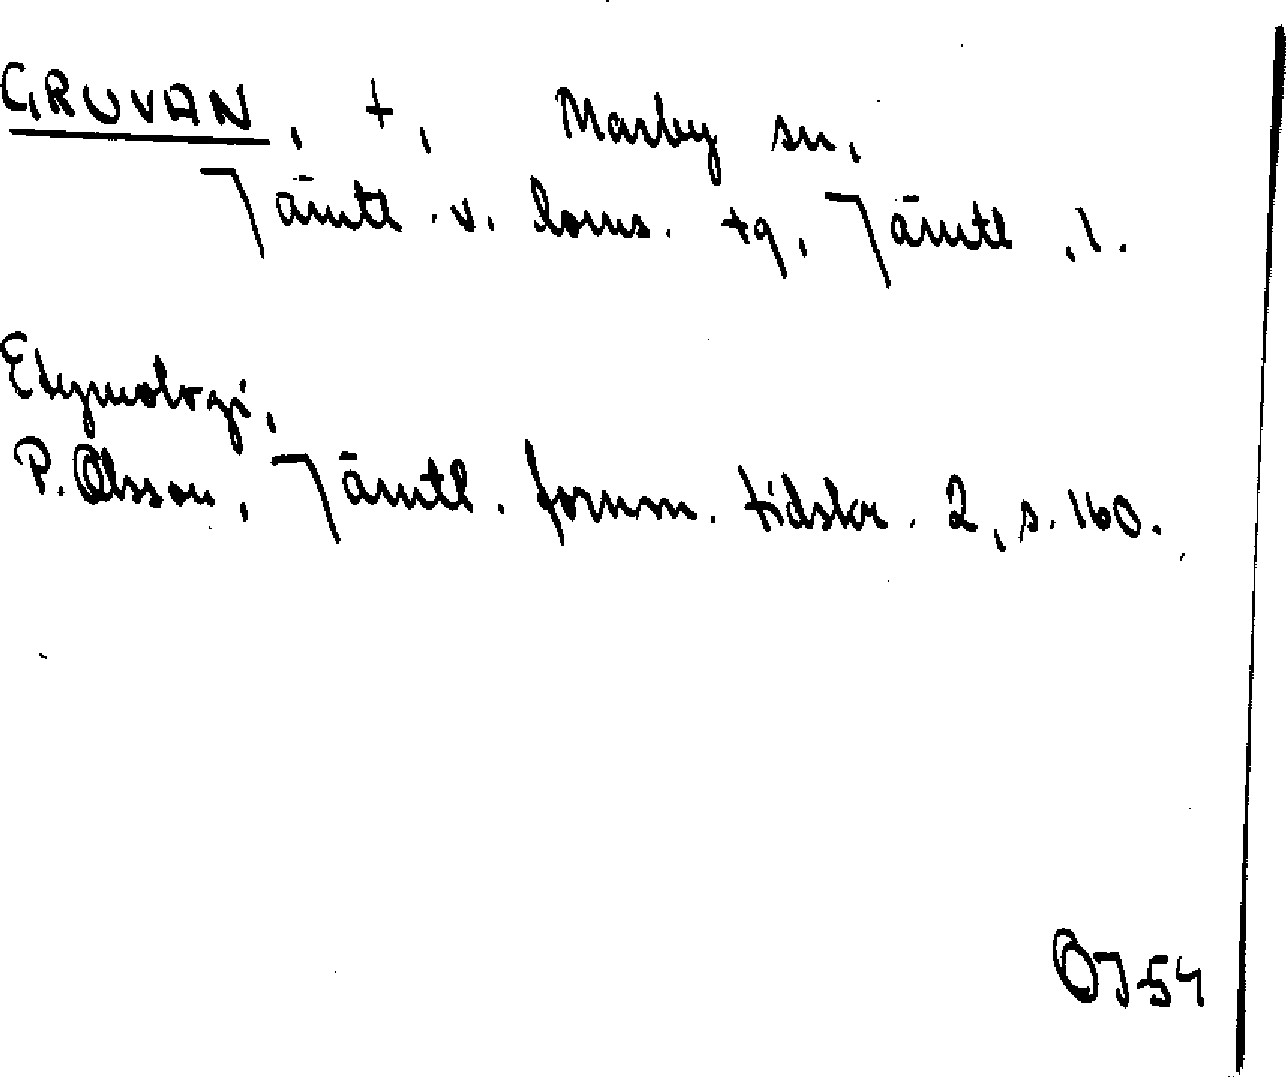 GRUVAN, t, Marby sn,
Jämtl. v. doms. tg, Jämtl. l.
Etymologi,
P. Olsson, Jämtl. fornm. tidskr. 2, s. 160.
OJ 54